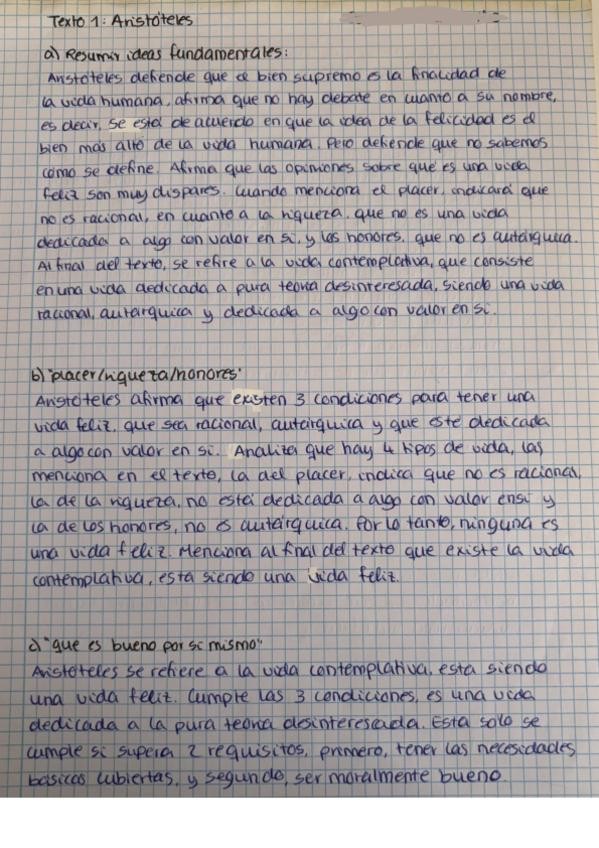 Texto 1: Aristóteles
a) Resumir ideas fundamentales:
Aristóteles defiende que el bien supremo es la finalidad de
la vida humana, afirma que no hay debate en cuanto a su nombre,
es decir, se está de acuerdo en que la idea de la felicidad es el
bien más alto de la vida humana. Pero defiende que no sabemos
cómo se define. Afirma que las opiniones sobre qué es una vida
feliz son muy dispares. Cuando menciona el placer, indicará que
no es racional, en cuanto a la riqueza, que no es una vida
dedicada a algo con valor en sí, y los honores, que no es autárquica.
Al final del texto, se refire a la vida contemplativa, que consiste
en una vida dedicada a pura teoría desinteresada, siendo una vida
racional, autárquica y dedicada a algo con valor en sí.
b) "placer/riqueza/honores"
Aristóteles afirma que existen 3 condiciones para tener una
vida feliz, que sea racional, autárquica y que esté dedicada
a algo con valor en sí. Analiza que hay 4 tipos de vida, las
menciona en el texto, la del placer, indica que no es racional,
la de la riqueza, no está dedicada a algo con valor ensí y
la de los honores, no es autárquica. Por lo tanto, ninguna es
una vida feliz. Menciona al final del texto que existe la vida
contemplativa, esta siendo una vida feliz.
c) "que es bueno por sí mismo"
Aristóteles se refiere a la vida contemplativa, esta siendo
una vida feliz. Cumple las 3 condiciones, es una vida
dedicada a la pura teoría desinteresada. Esta solo se
cumple si supera 2 requisitos, primero, tener las necesidades
básicas cubiertas, y segundo, ser moralmente bueno.